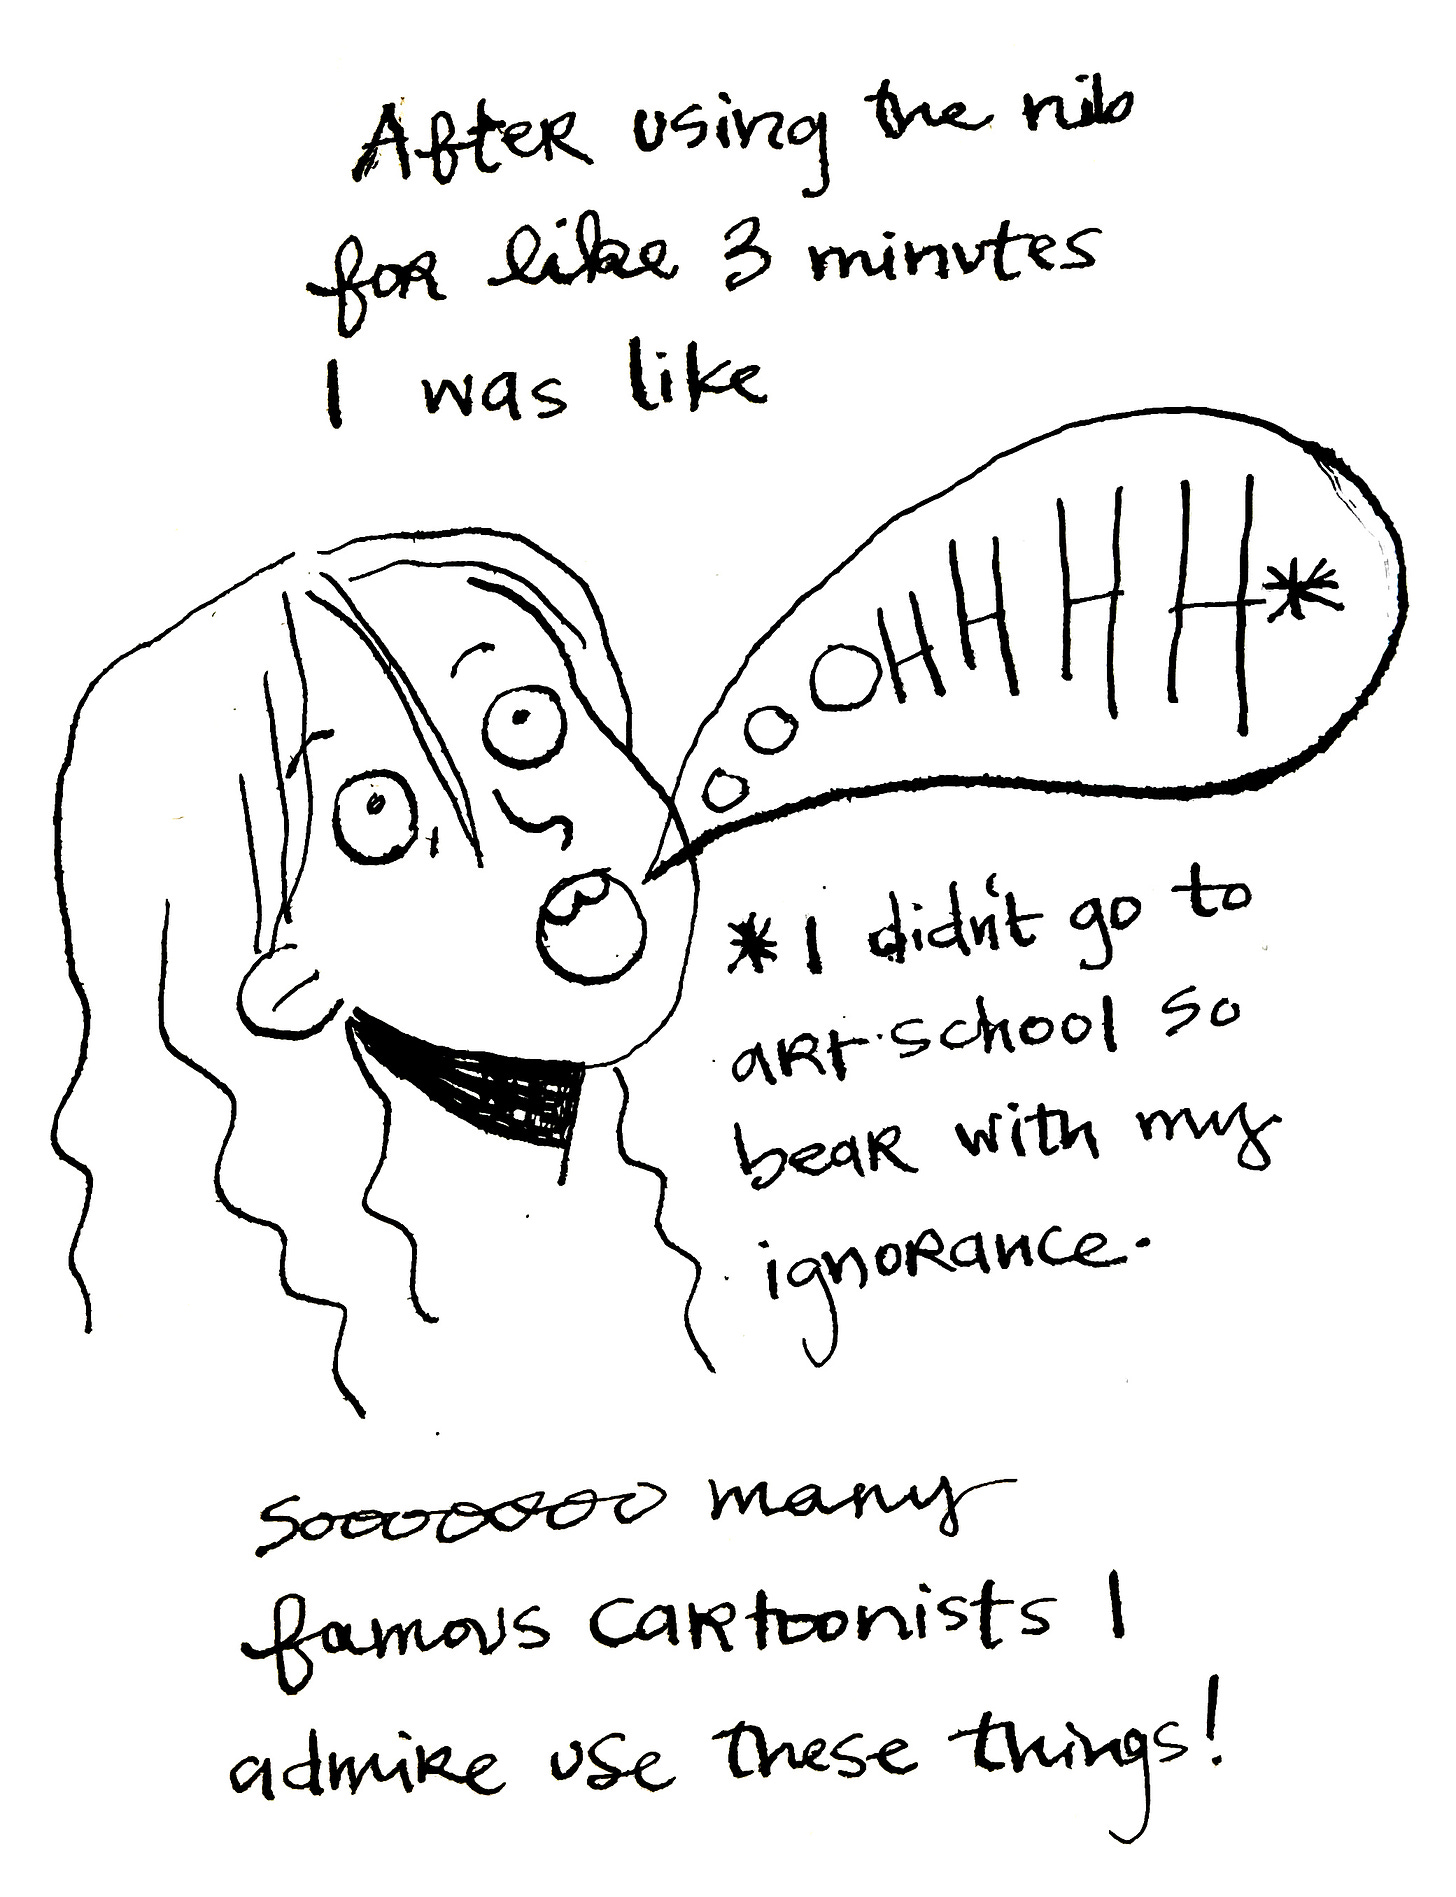 After using the nib
for like 3 minutes
I was like
OHHHH*
*I didn't go to
art school so
bear with my
ignorance.
Sooooooo many
famous cartoonists I
admire use these things!